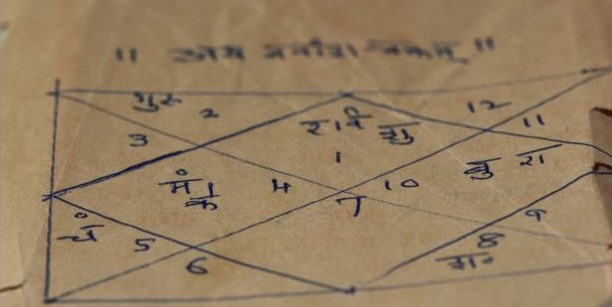 ॥ अथ नवांश चक्रम् ॥
गुरु 2 12
3 रवि शु 11
1 बु रा
मं के 4 10
7
चं 5 9
6 8
श॰